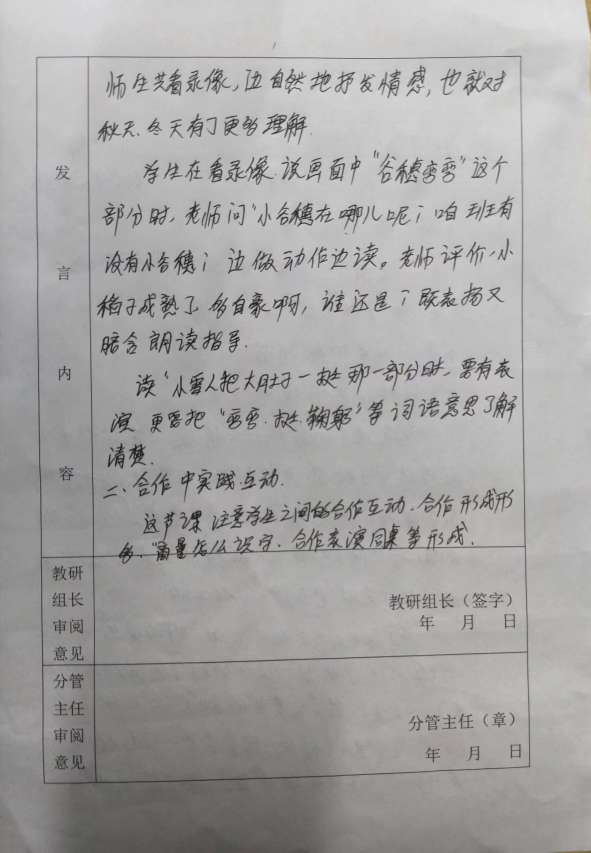 师生共看录像,边自然地抒发情感,也就对
秋天、冬天有了更多理解.
学生在看录像.说画面中“谷穗弯弯”这个
部分时,老师问“小谷穗在哪儿呢?咱班有
没有小谷穗?边做动作边读。老师评价“小
稻子成熟了多自豪啊,谁还是?既表扬又
暗含朗读指导.
读“小雪人把大肚子一挺那一部分时,要有表
演更要把“弯弯.挺.鞠躬”等词语意思了解
清楚.
二、合作中实践.互动.
这节课注意学生之间的合作互动.合作形成形
多.商量怎么识字.合作表演同桌等形成.
发
言
内
容
教研
组长
审阅
意见
教研组长(签字)
年 月 日
分管
主任
审阅
意见
分管主任(章)
年 月 日